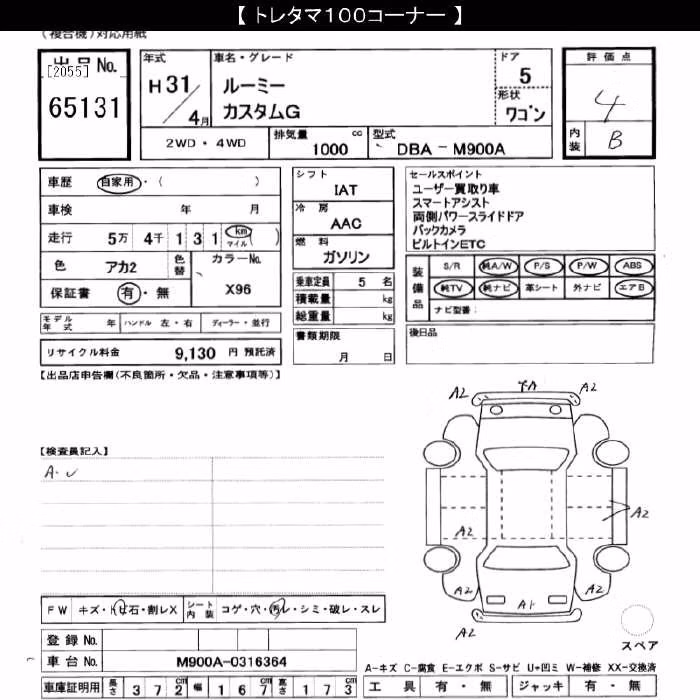 【 トレタマ100コーナー 】
(複合機)対応用紙
出品No.
[2055]
65131
年式
H31/4月
車名・グレード
ルーミー
カスタムG
ドア
5
形状
ワゴン
評価点
4
内装
B
2WD・4WD
排気量
1000
cc
型式
DBA - M900A
車歴
自家用・( )
車検 年 月
走行 5万 4千 1 3 1 km マイル ( )
色 アカ2
色替
カラーNo.
X96
保証書 有・無
シフト
IAT
冷房
AAC
燃料
ガソリン
乗車定員 5 名
積載量 kg
総重量 kg
書類期限
月 日
セールスポイント
ユーザー買取り車
スマートアシスト
両側パワースライドドア
バックカメラ
ビルトインETC
装備品
S/R 純A/W P/S P/W ABS
純TV 純ナビ 革シート 外ナビ エアB
ナビ型番:
後日品
モデル年式 年 ハンドル 左・右 ディーラー・並行
リサイクル料金 9,130 円 預託済
【出品店申告欄(不良箇所・欠品・注意事項等)】
A2
A2
A2
A2
A2
A2
A2
A2
A1
A2
【検査員記入】
FW キズ・トビ石・割レX シート内装 コゲ・穴・汚レ・シミ・破レ・スレ
登録 No.
車台 No. M900A-0316364
車庫証明用 長さ 3 7 2 cm 幅 1 6 7 cm 高さ 1 7 3 cm
スペア
A-キズ C-腐食 E-エクボ S-サビ U+凹ミ W-補修 XX-交換済
工具 有・無 ジャッキ 有・無